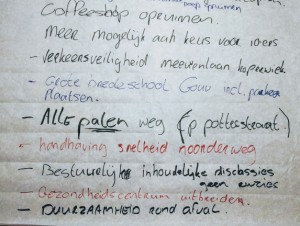 Coffeeshop opruimen.
Meer mogelijkheden voor 10-ers
- Verkeersveiligheid meeuwenlaan koperwiek.
- Grote bredeschool Gouw incl. parkeer
plaatsen.
- Alle palen weg (P. potterstraat)
- handhaving snelheid noorderweg
- Bestuurlijk inhoudelijke discussies
geen ruzies
- Gezondheidscentrum uitbreiden.
- DUURZAAMHEID rond afval.